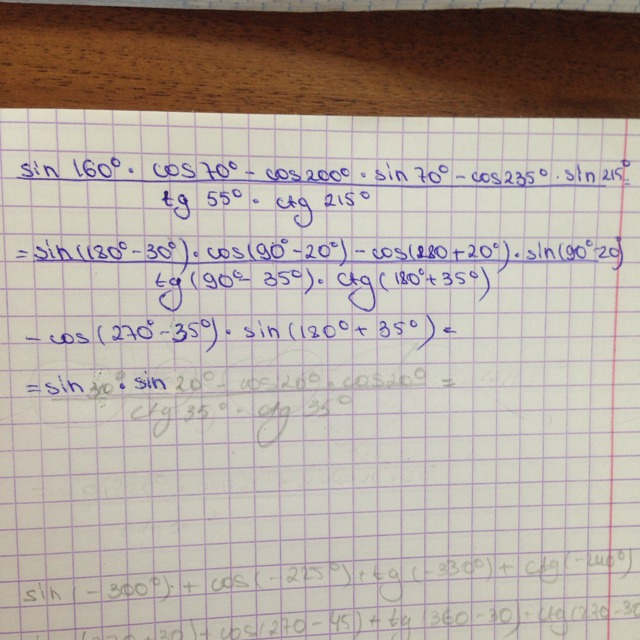 sin 160° · cos 70° - cos 200° · sin 70° - cos 235° · sin 215° =
tg 55° · ctg 215°
= sin(180° - 30°) · cos(90° - 20°) - cos(180 + 20°) · sin(90° 20)
tg(90° - 35°) · ctg(180° + 35°)
- cos(270° - 35°) · sin(180° + 35°) =
= sin 30° · sin 20° - cos 20° · cos 20° =
ctg 35° · ctg 35°
sin(-300°) + cos(-225°) + tg(-330°) + ctg(-240°)
+ cos(270 - 45) + tg(360 - 30) - ctg(270 - 30